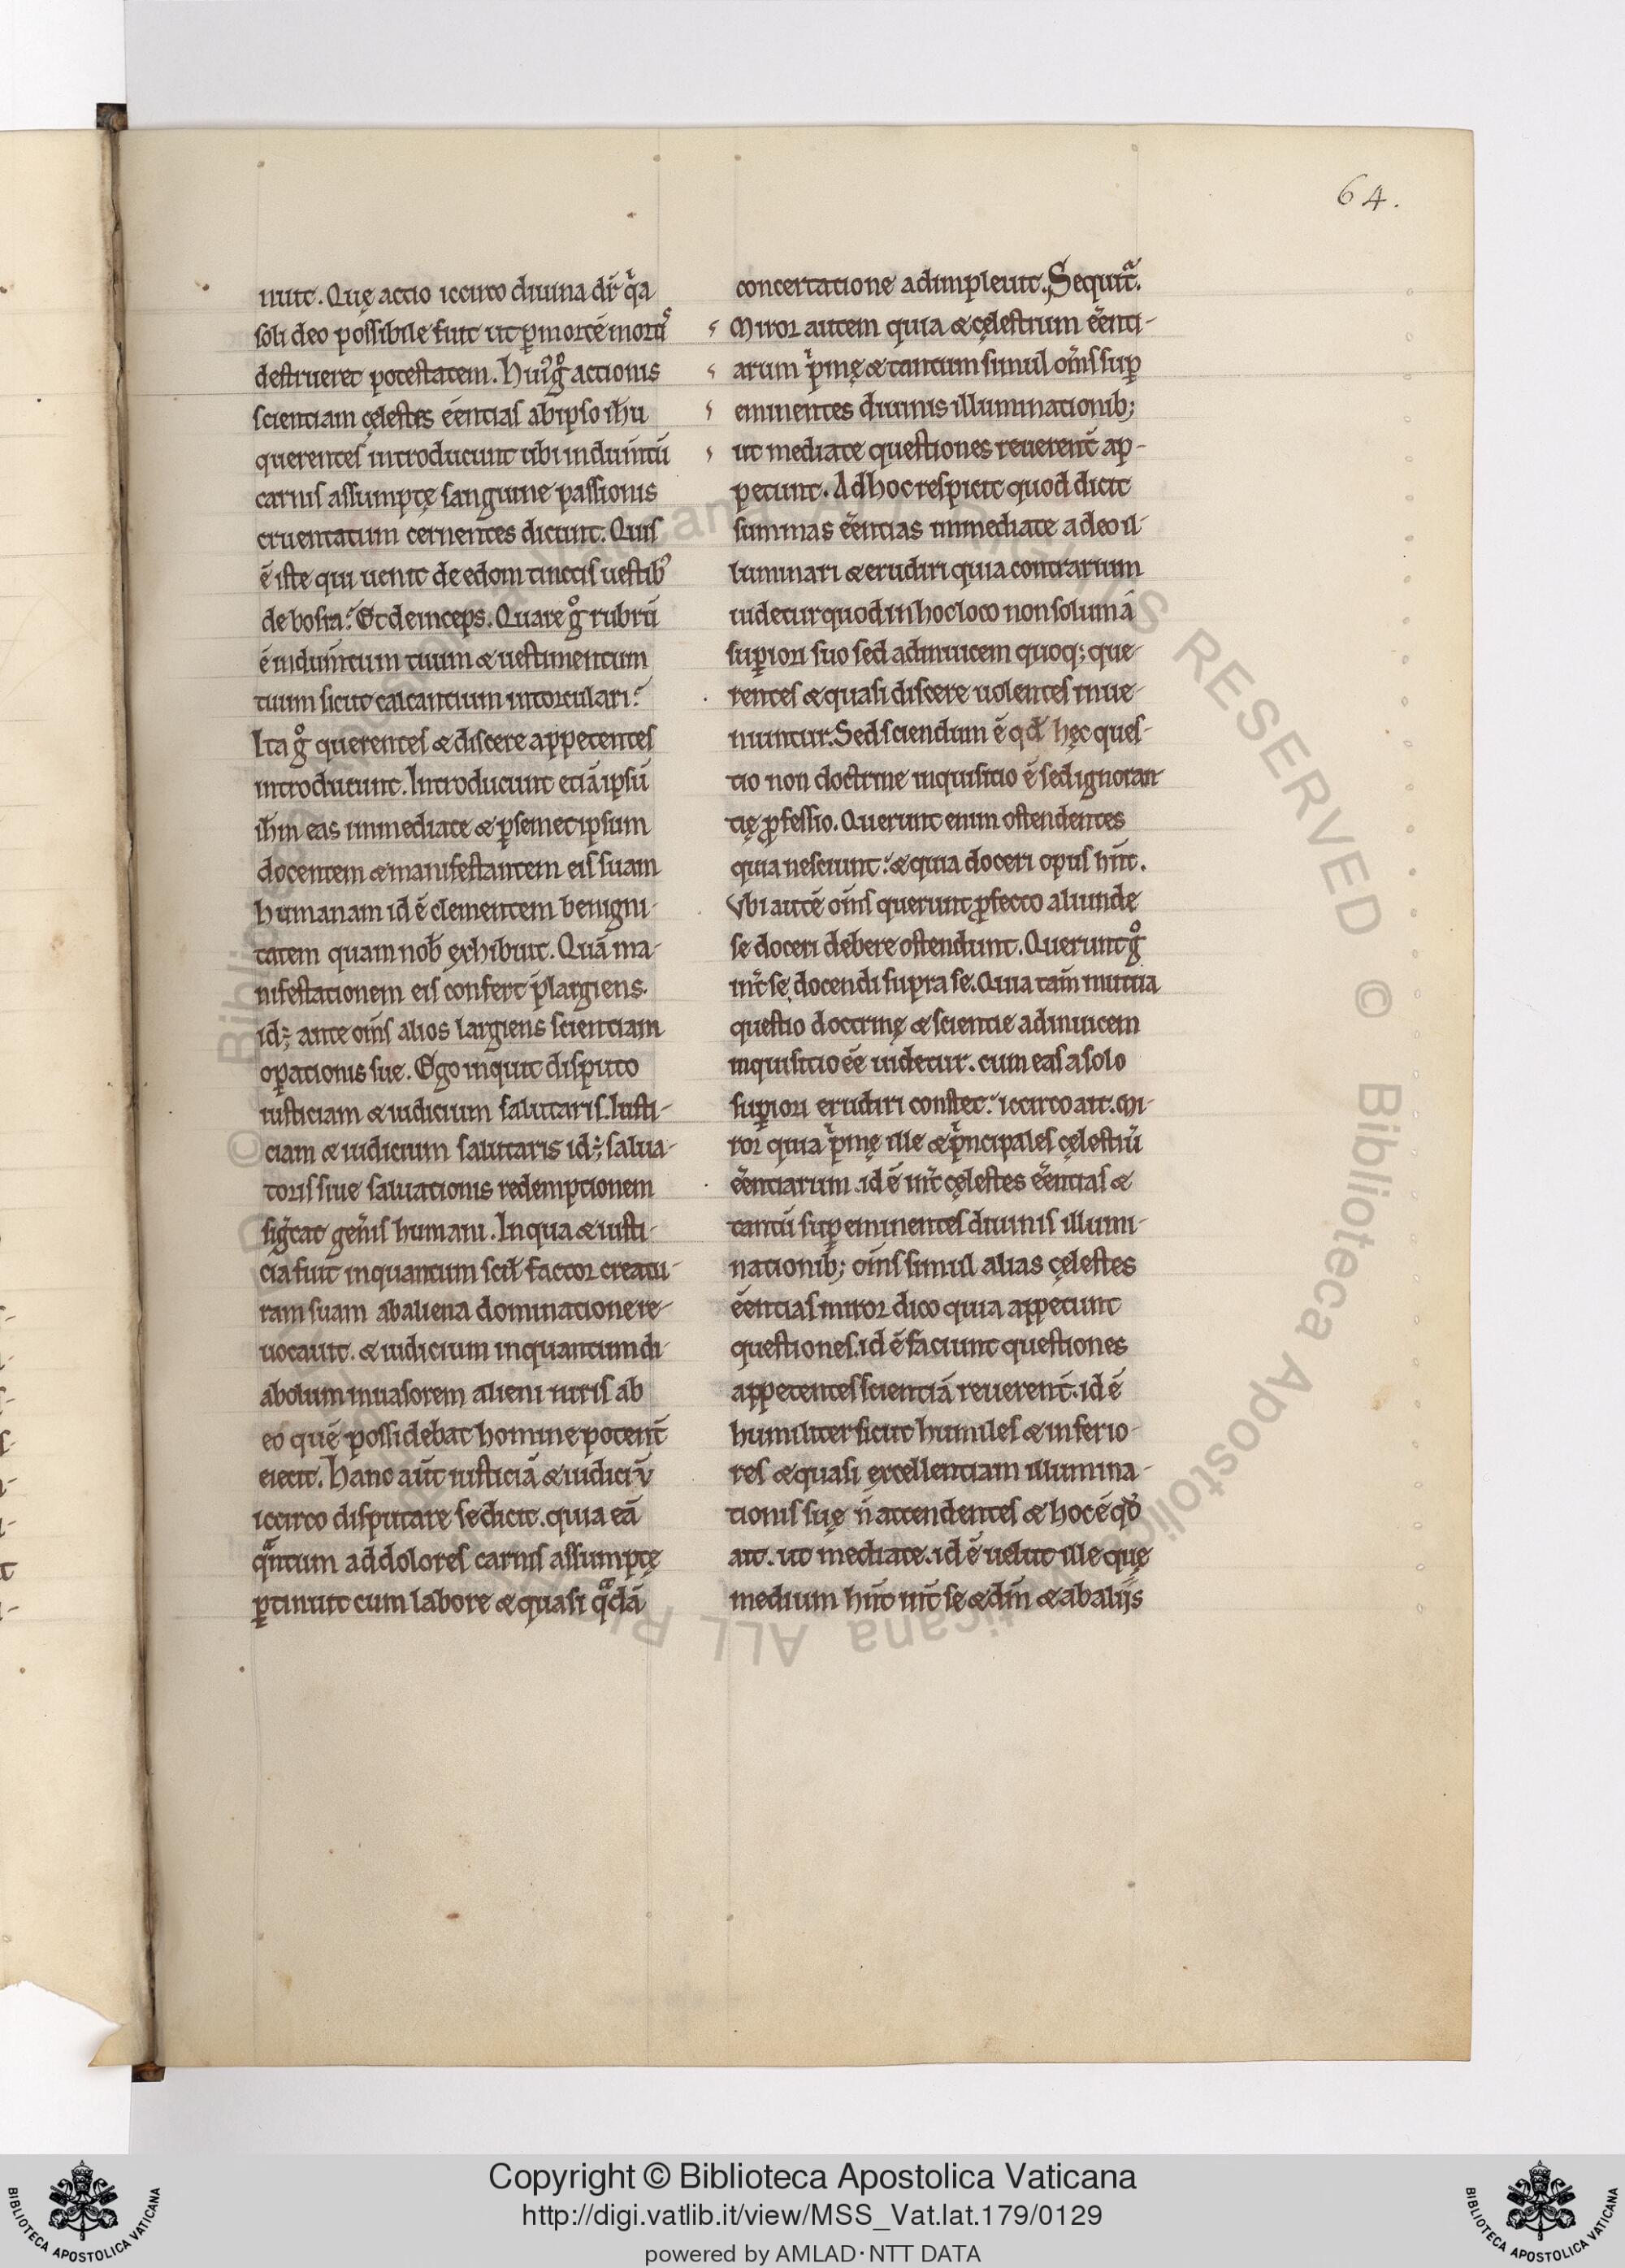 64.
nuit. Quę actio iccirco diuina dr̄ qͥa
soli deo possibile fuit ut ꝑ mortē mortͥˢ
destrueret potestatem. Huiꝰ gͦ actionis
scientiam cęlestes eēntias ab ipso ihu
querentes introducunt ubi indumtū
carnis assumptę sanguine passionis
cruentatum cernentes dicunt. Quis
ē iste qui uenit de edom tinctis uestibꝰ
de bosra? Et deinceps. Quare gͦ rubrū
ē indumtum tuum & uestimentum
tuum sicut calcantium in torculari?
Ita gͦ querentes & discere appetentes
introducunt. Introducunt etiā ipsū
ihm eas inmediate & ꝑ semet ipsum
docentem & manifestantem eis suam
humanam id ē clementem benigni-
tatem quam nob̄ exhibuit. Quā ma-
nifestationem eis confert p̄largiens.
id ÷ ante om̄s alios largiens scientiam
oꝑationis sue. Ego inquit disputo
iusticiam & iudicium salutaris. Iusti-
ciam & iudicium salutaris id ÷ salua-
toris siue saluationis redemptionem
sigͨcat gen̄is humani. In qua & iusti-
cia fuit inquantum scil̄ factor creatu-
ram suam ab aliena dominatione re-
uocauit. & iudicium inquantum di-
abolum inuasorem alieni iuris ab
eo quē possidebat homine potent̄
eiecit. Hanc aūt iusticiā & iudiciū
iccirco disputare se dicit. quia eā
qͣntum ad dolores carnis assumptę
ꝑtinuit cum labore & quasi qͣdā
concertatione adimpleuit. Sequitᷓ.
Miror autem quia & cęlestium eēnti-
arum pͥmę & tantum simul om̄s suꝑ
eminentes diuinis illuminationib;
ut mediate questiones reuerent̄ ap-
petunt. Ad hoc respicit quod dicit
summas eēntias inmediate a deo il-
luminari & erudiri quia contrarium
uidetur quod in hoc loco non solum á
suꝑiori suo sed adinuicem quoq; que-
rentes & quasi discere uolentes inue-
niuntur. Sed sciendum ē qd̄ hęc ques-
tio non doctrine inquisitio ē sed ignoran-
tię ꝓfessio. Querunt enim ostendentes
quia nesciunt. & quia doceri opus hn̄t.
Vbi autē om̄s querunt ꝓfecto aliunde
se doceri debere ostendunt. Querunt gͦ
int̄ se docendi supra se. Quia tam̄ mutua
questio doctrinę & scientie adinuicem
inquisitio eē uidetur. cum eas a solo
suꝑiori erudiri constet. iccirco ait. Mi-
ror quia pͥmę ille & pͥncipales cęlestiū
eēntiarum. id ē int̄ cęlestes eēntias &
tantū suꝑ eminentes diuinis illumi-
nationib; om̄s simul alias cęlestes
eēntias miror dico quia appetunt
questiones. id ē faciunt questiones
appetentes scientiā reuerent̄. id ē
humiliter sicut humiles & inferio-
res & quasi excellentiam illumina-
tionis suę n̄ attendentes & hoc ē qd̄
ait. ut mediate. id ē uelut ille quę
medium hn̄t int̄ se & dm̄ & ab aliis
Copyright © Biblioteca Apostolica Vaticana
http://digi.vatlib.it/view/MSS_Vat.lat.179/0129
powered by AMLAD·NTT DATA
BIBLIOTECA APOSTOLICA VATICANA
BIBLIOTECA APOSTOLICA VATICANA